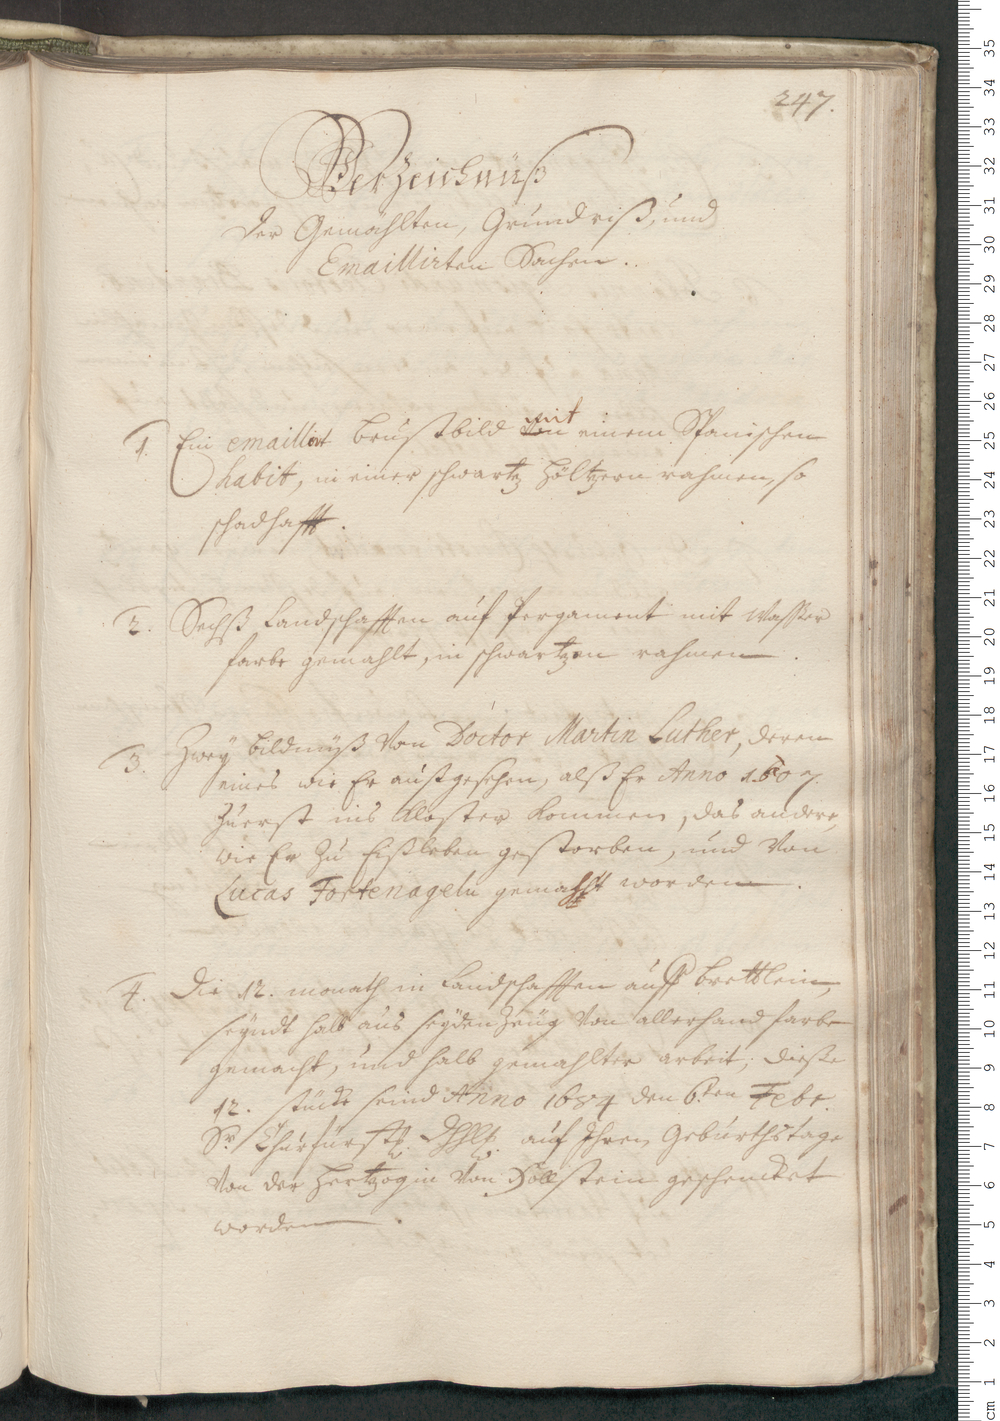 247.
Verzeichnüß
der Gemählten, Grundriß, und
Emaillirten Sachen.
1. Ein emaillirt brustbild mit einem Spanischen
habit, in einer schwartz höltzern rahmen, so
schadhafft.
2. Sechß Landschafften auf Pergament mit Wasser
farbe gemahlt, in schwartzen rahmen.
3. Zwey bildnüß von Doctor Martin Luther, deren
eines wie Er außgesehen, alß Er Anno 1507.
zuerst ins Kloster kommen, das andere,
wie Er zu Eißleben gestorben, und von
Lucas Fortenageln gemahlt worden.
4. Die 12. monath in Landschafften auff brettlein,
seyndt halb aus seyden Zeüg von allerhand farbe
gemacht, und halb gemahlter arbeit; diese
12. stück seind Anno 1684 den 6.ten Febr.
Sr. Churfürstl. Dhlt. auf Ihren Geburthstage
von der Hertzogin von Hollstein geschencket
worden.
35
34
33
32
31
30
29
28
27
26
25
24
23
22
21
20
19
18
17
16
15
14
13
12
11
10
9
8
7
6
5
4
3
2
cm 1